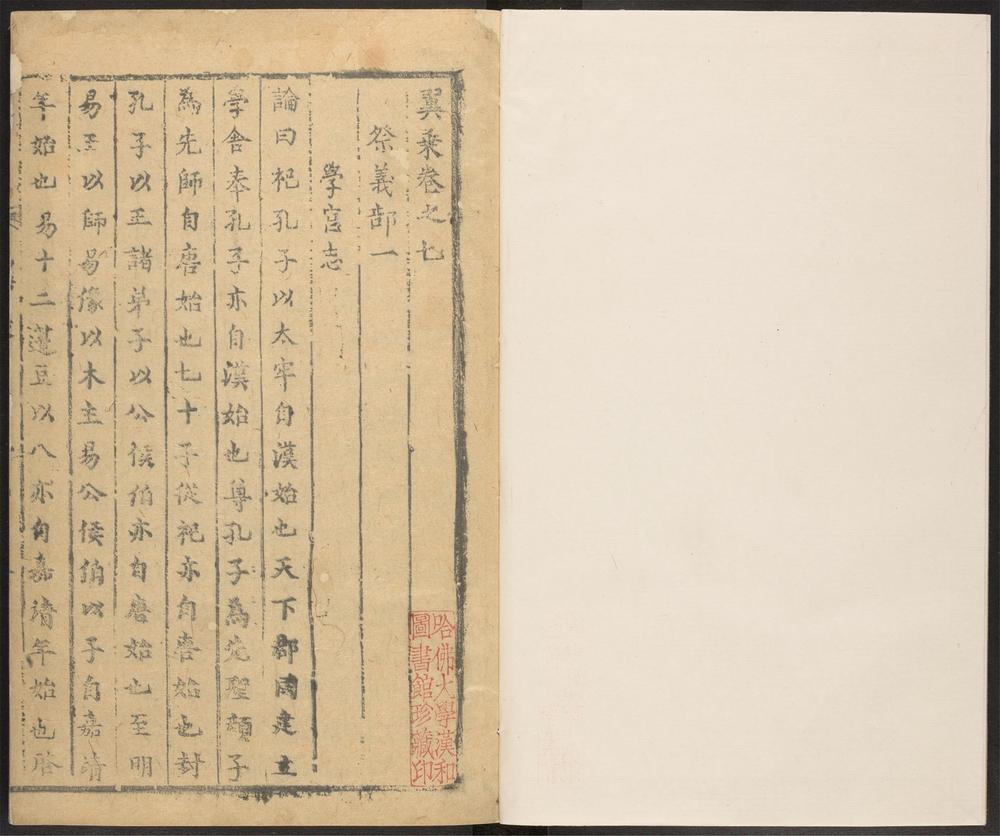 翼乘卷之七
祭義部一
學宮志
論曰祀孔子以太牢自漢始也天下郡國建立
學舍奉孔子亦自漢始也尊孔子為先聖顏子
為先師自唐始也七十子從祀亦自唐始也封
孔子以王諸弟子以公侯伯亦自唐始也至明
易王以師易像以木主易公侯伯以子自嘉靖
年始也易十二籩豆以八亦自嘉靖年始也啓
哈佛大學漢和
圖書館珍藏印